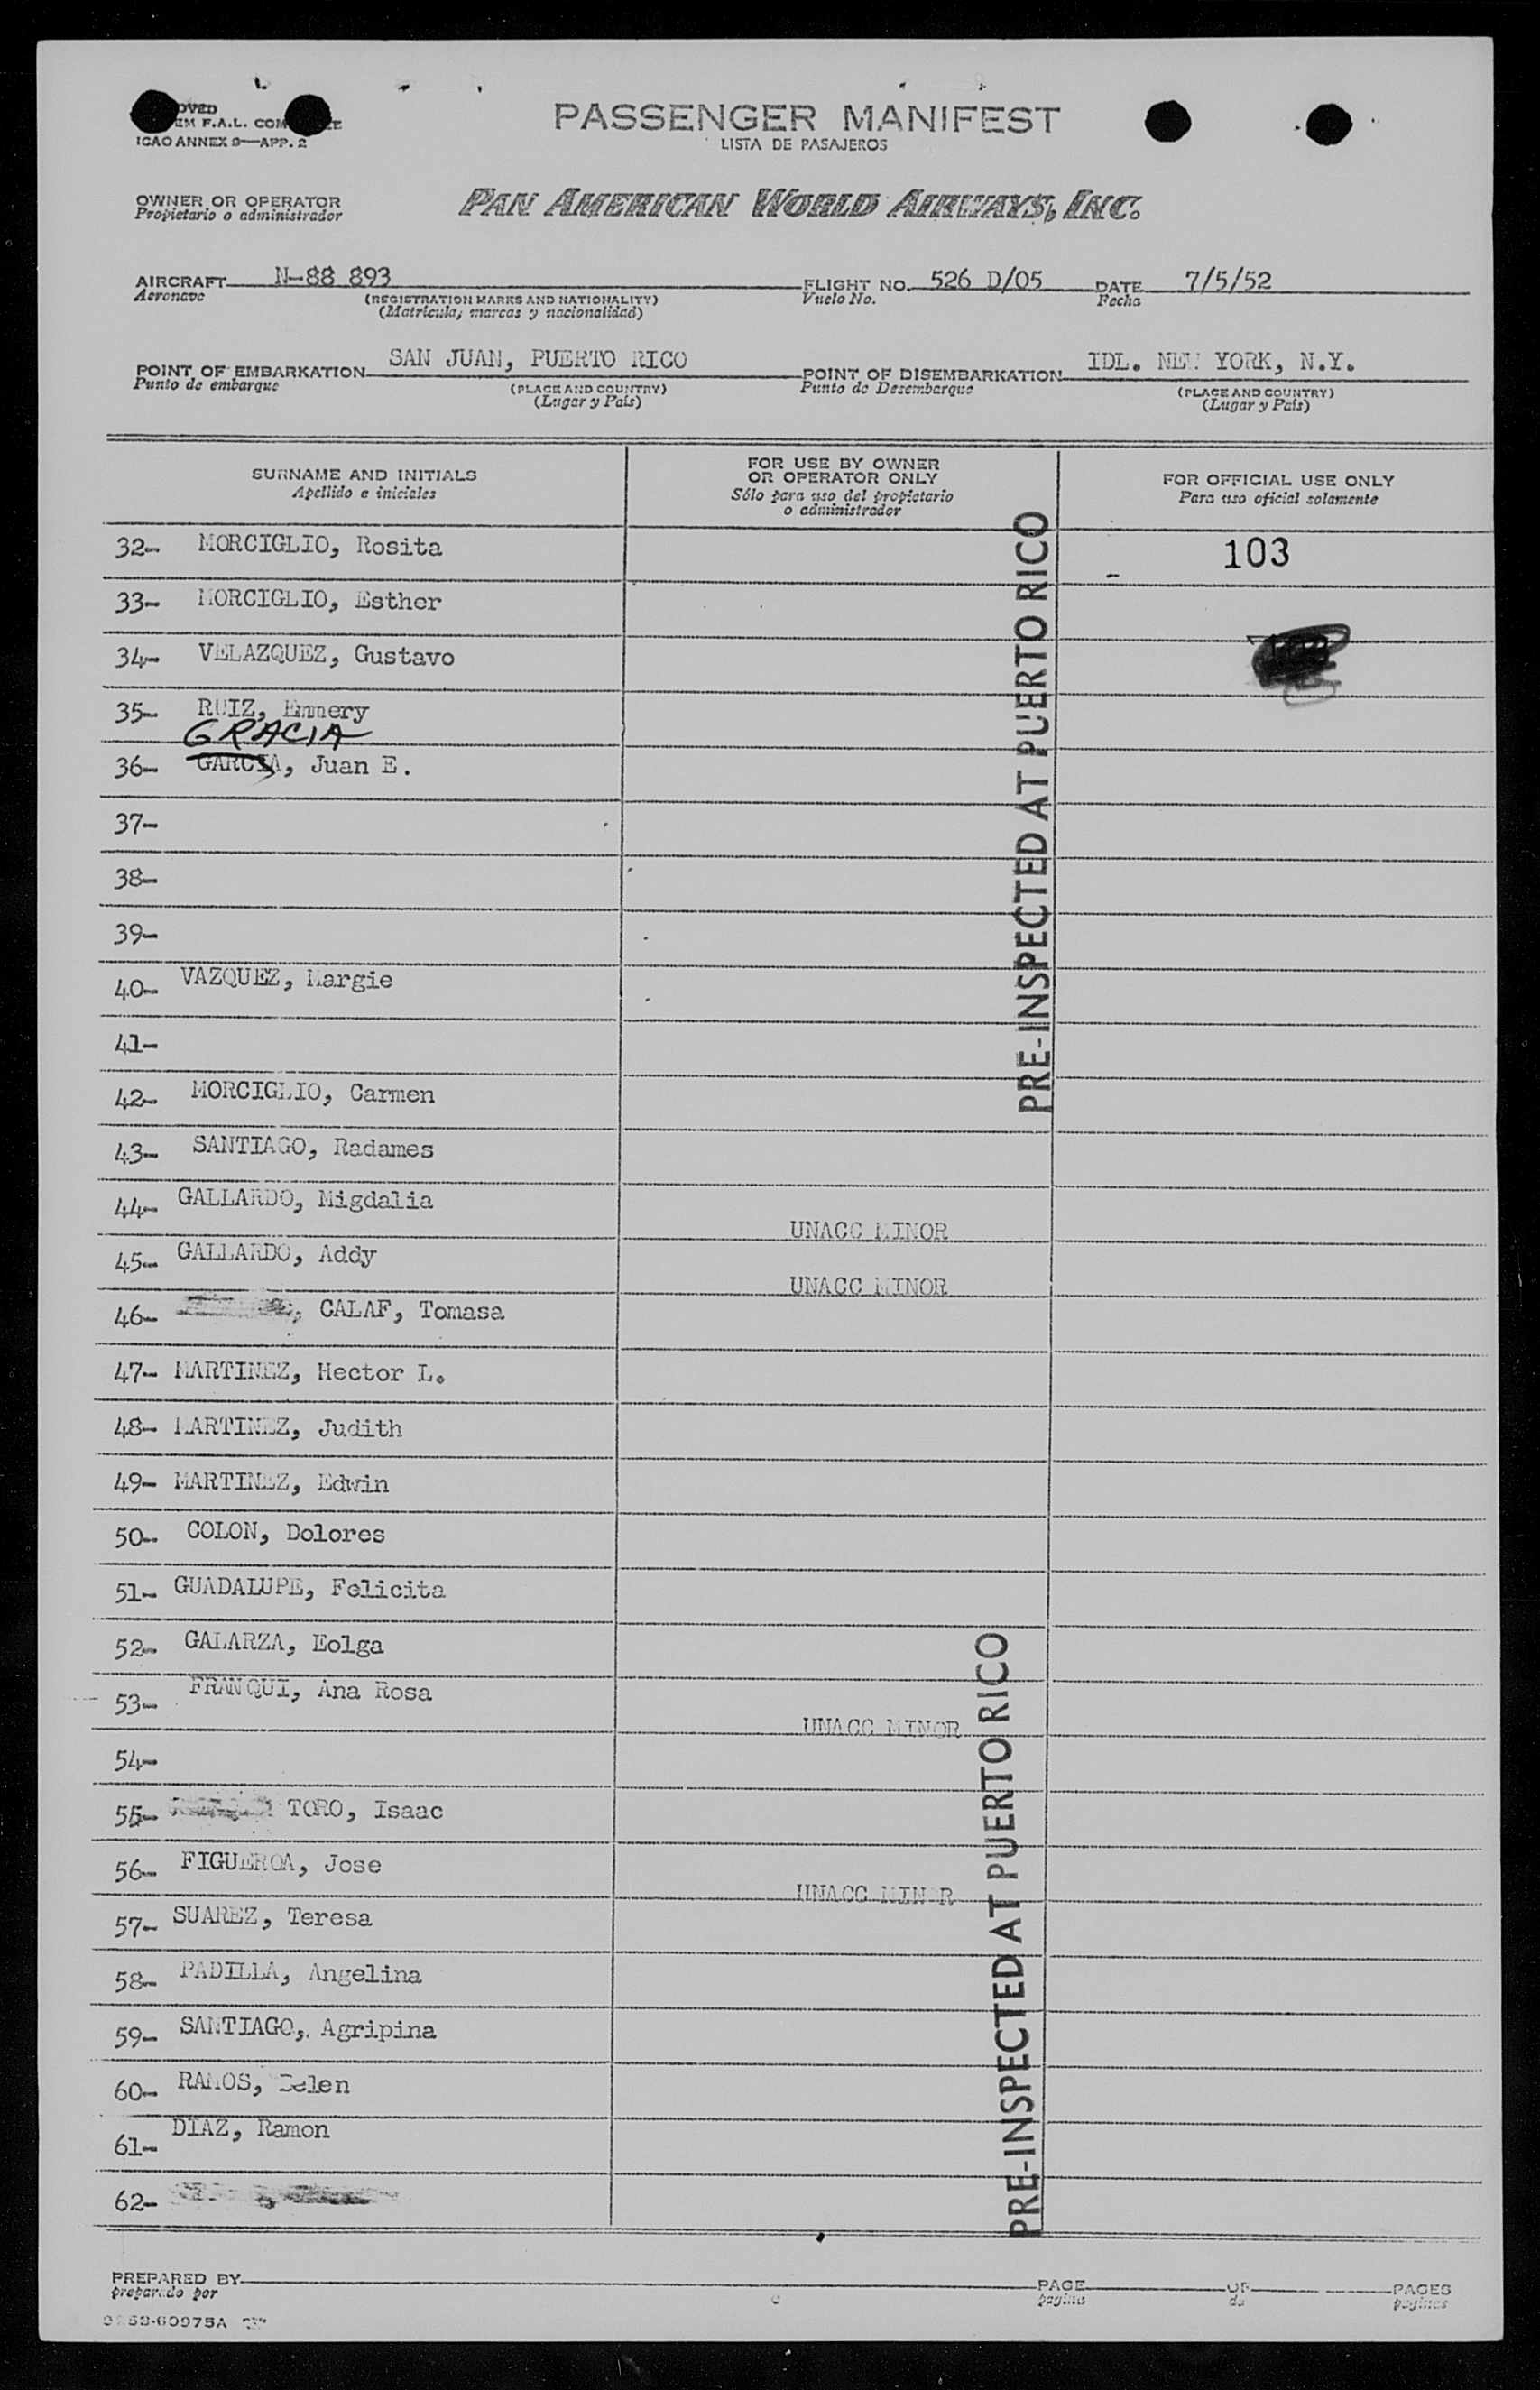 PASSENGER MANIFEST
LISTA DE PASAJEROS
F.A.L.
ICAO ANNEX 9—APP. 2
OWNER OR OPERATOR
Propietario o administrador
PAN AMERICAN WORLD AIRWAYS, INC.
AIRCRAFT N-88 893 FLIGHT NO. 526 D/05 DATE 7/5/52
Aeronave (REGISTRATION MARKS AND NATIONALITY) Vuelo No. Fecha
(Matrícula, marcas y nacionalidad)
POINT OF EMBARKATION SAN JUAN, PUERTO RICO POINT OF DISEMBARKATION IDL. NEW YORK, N.Y.
Punto de embarque (PLACE AND COUNTRY) Punto de Desembarque (PLACE AND COUNTRY)
(Lugar y País) (Lugar y País)
SURNAME AND INITIALS
Apellido e iniciales
FOR USE BY OWNER
OR OPERATOR ONLY
Sólo para uso del propietario
o administrador
FOR OFFICIAL USE ONLY
Para uso oficial solamente
32- MORCIGLIO, Rosita 103
33- MORCIGLIO, Esther
34- VELAZQUEZ, Gustavo
35- RUIZ, Emmery
GRACIA
36- GARCIA, Juan E.
37-
38-
39-
40- VAZQUEZ, Margie
41-
42- MORCIGLIO, Carmen
43- SANTIAGO, Radames
44- GALLARDO, Migdalia
UNACC MINOR
45- GALLARDO, Addy
UNACC MINOR
46- CALAF, Tomasa
47- MARTINEZ, Hector L.
48- MARTINEZ, Judith
49- MARTINEZ, Edwin
50- COLON, Dolores
51- GUADALUPE, Felicita
52- GALARZA, Eolga
53- FRANQUI, Ana Rosa
UNACC MINOR
54-
55- TORO, Isaac
56- FIGUEROA, Jose
UNACC MINOR
57- SUAREZ, Teresa
58- PADILLA, Angelina
59- SANTIAGO, Agripina
60- RAMOS, Belen
61- DIAZ, Ramon
62-
PRE-INSPECTED AT PUERTO RICO
PRE-INSPECTED AT PUERTO RICO
PREPARED BY PAGE OF PAGES
preparado por página de páginas